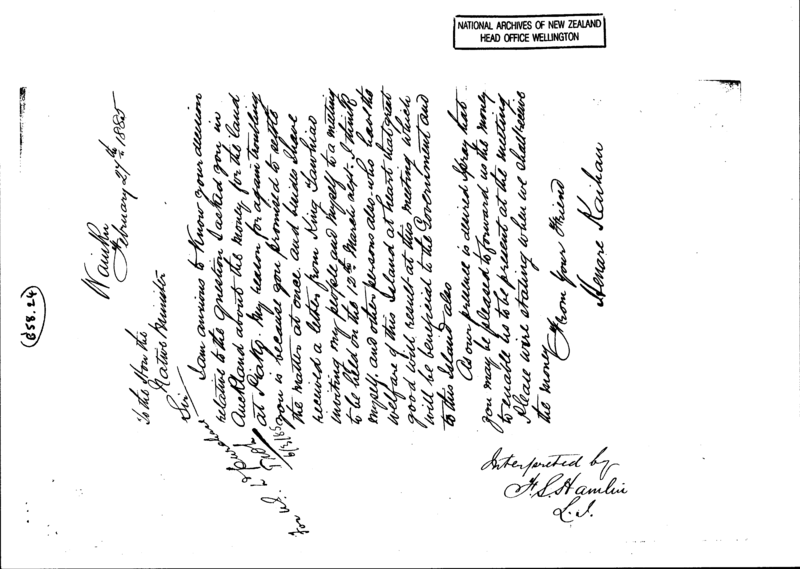 NATIONAL ARCHIVES OF NEW ZEALAND
HEAD OFFICE WELLINGTON
d58.24
February 27th 1885
To the Hon the
Native Minister
Sir
I am anxious to know your decision
relative to the question I asked you in
Auckland about the money for the land
at Piako. My reason for again troubling
you is because you promised to settle
the matter at once. and besides I have
received a letter from King Tawhiao
inviting my people and myself to a meeting
to be held on the 12th March next. I think
myself, and other persons also who have the
welfare of this Island at heart that great
good will result at this meeting which
will be beneficial to the Government and
to this Island also
As our presence is desired I pray that
you may be pleased to forward us the money
to enable us to be present at the meeting
Please wire stating when we shall receive
the money
From your Friend
6/3/85
Interpreted by
F. S. Hamlin
L. I.